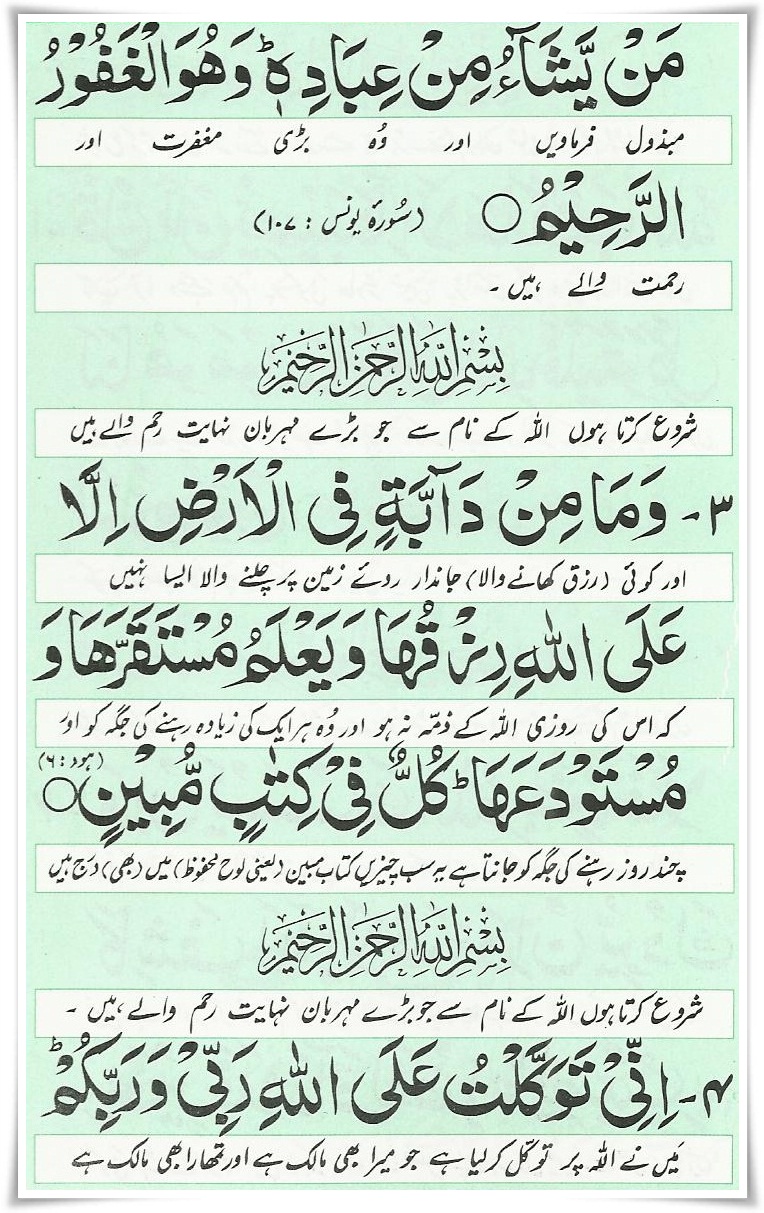 مَنْ يَّشَآءُ مِنْ عِبَادِهٖ ؕ وَهُوَ الْغَفُوْرُ
مبذول فرماویں اور وُہ بڑی مغفرت اور
الرَّحِيْمُ ○ (سُورۂ یونس : ۱۰۷)
رحمت والے ہیں ۔
بِسْمِ اللّٰهِ الرَّحْمٰنِ الرَّحِيْمِ
شروع کرتا ہوں اللہ کے نام سے جو بڑے مہربان نہایت رحم والے ہیں
۳- وَمَا مِنْ دَآبَّةٍ فِى الْاَرْضِ اِلَّا
اور کوئی (رزق کھانے والا) جاندار روئے زمین پر چلنے والا ایسا نہیں
عَلَى اللّٰهِ رِزْقُهَا وَيَعْلَمُ مُسْتَقَرَّهَا وَ
کہ اس کی روزی اللہ کے ذمّہ نہ ہو اور وُہ ہر ایک کی زیادہ رہنے کی جگہ کو اور
مُسْتَوْدَعَهَا ؕ كُلٌّ فِىْ كِتٰبٍ مُّبِيْنٍ ○ (ہود : ۶)
چند روز رہنے کی جگہ کو جانتا ہے یہ سب چیزیں کتاب مبین (یعنی لوح محفوظ) میں (بھی) درج ہیں
بِسْمِ اللّٰهِ الرَّحْمٰنِ الرَّحِيْمِ
شروع کرتا ہوں اللہ کے نام سے جو بڑے مہربان نہایت رحم والے ہیں ۔
۴- اِنِّىْ تَوَكَّلْتُ عَلَى اللّٰهِ رَبِّىْ وَرَبِّكُمْ ؕ
مَیں نے اللہ پر توکّل کر لیا ہے جو میرا بھی مالک ہے اور تمھارا بھی مالک ہے